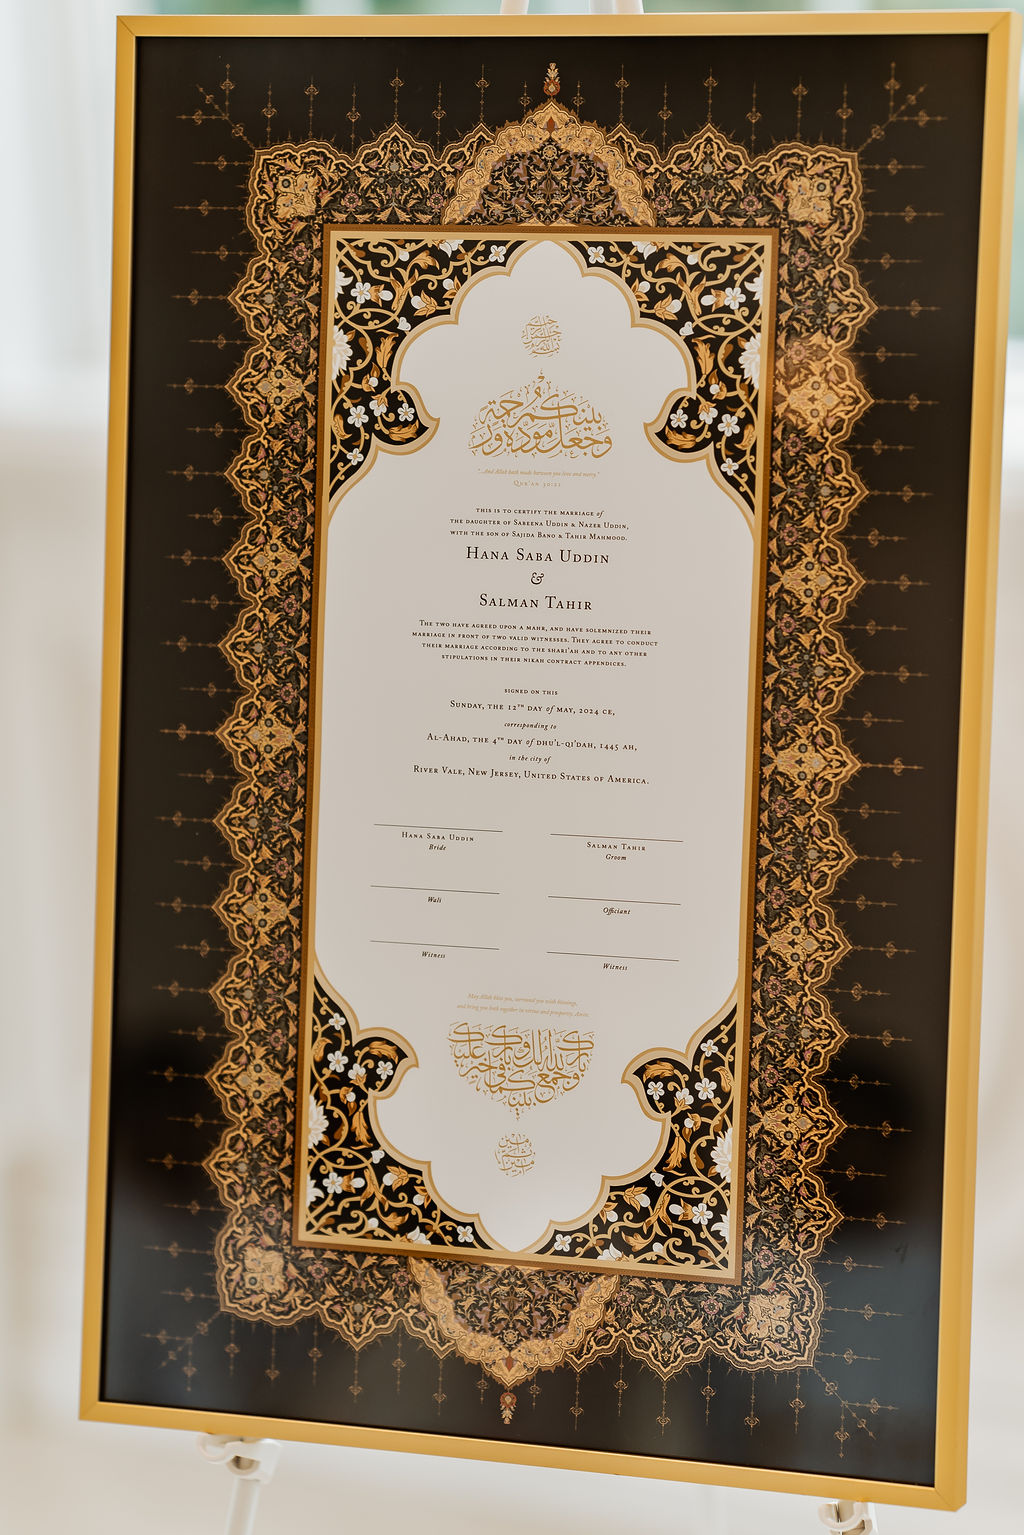 بسم الله الرحمن الرحيم
وجعل بينكم مودة ورحمة
"...And Allah hath made between you love and mercy."
Qur'an 30:21
this is to certify the marriage of
the daughter of Sabeena Uddin & Nazer Uddin,
with the son of Sajida Bano & Tahir Mahmood.
Hana Saba Uddin
&
Salman Tahir
The two have agreed upon a mahr, and have solemnized their
marriage in front of two valid witnesses. They agree to conduct
their marriage according to the shari'ah and to any other
stipulations in their nikah contract appendices.
signed on this
Sunday, the 12th day of may, 2024 ce,
corresponding to
Al-Ahad, the 4th day of dhu'l-qi'dah, 1445 ah,
in the city of
River Vale, New Jersey, United States of America.
Hana Saba Uddin
Bride
Salman Tahir
Groom
Wali
Officiant
Witness
Witness
May Allah bless you, surround you with blessings,
and bring you both together in virtue and prosperity. Amin.
بارك الله لك وبارك عليك وجمع بينكما في خير